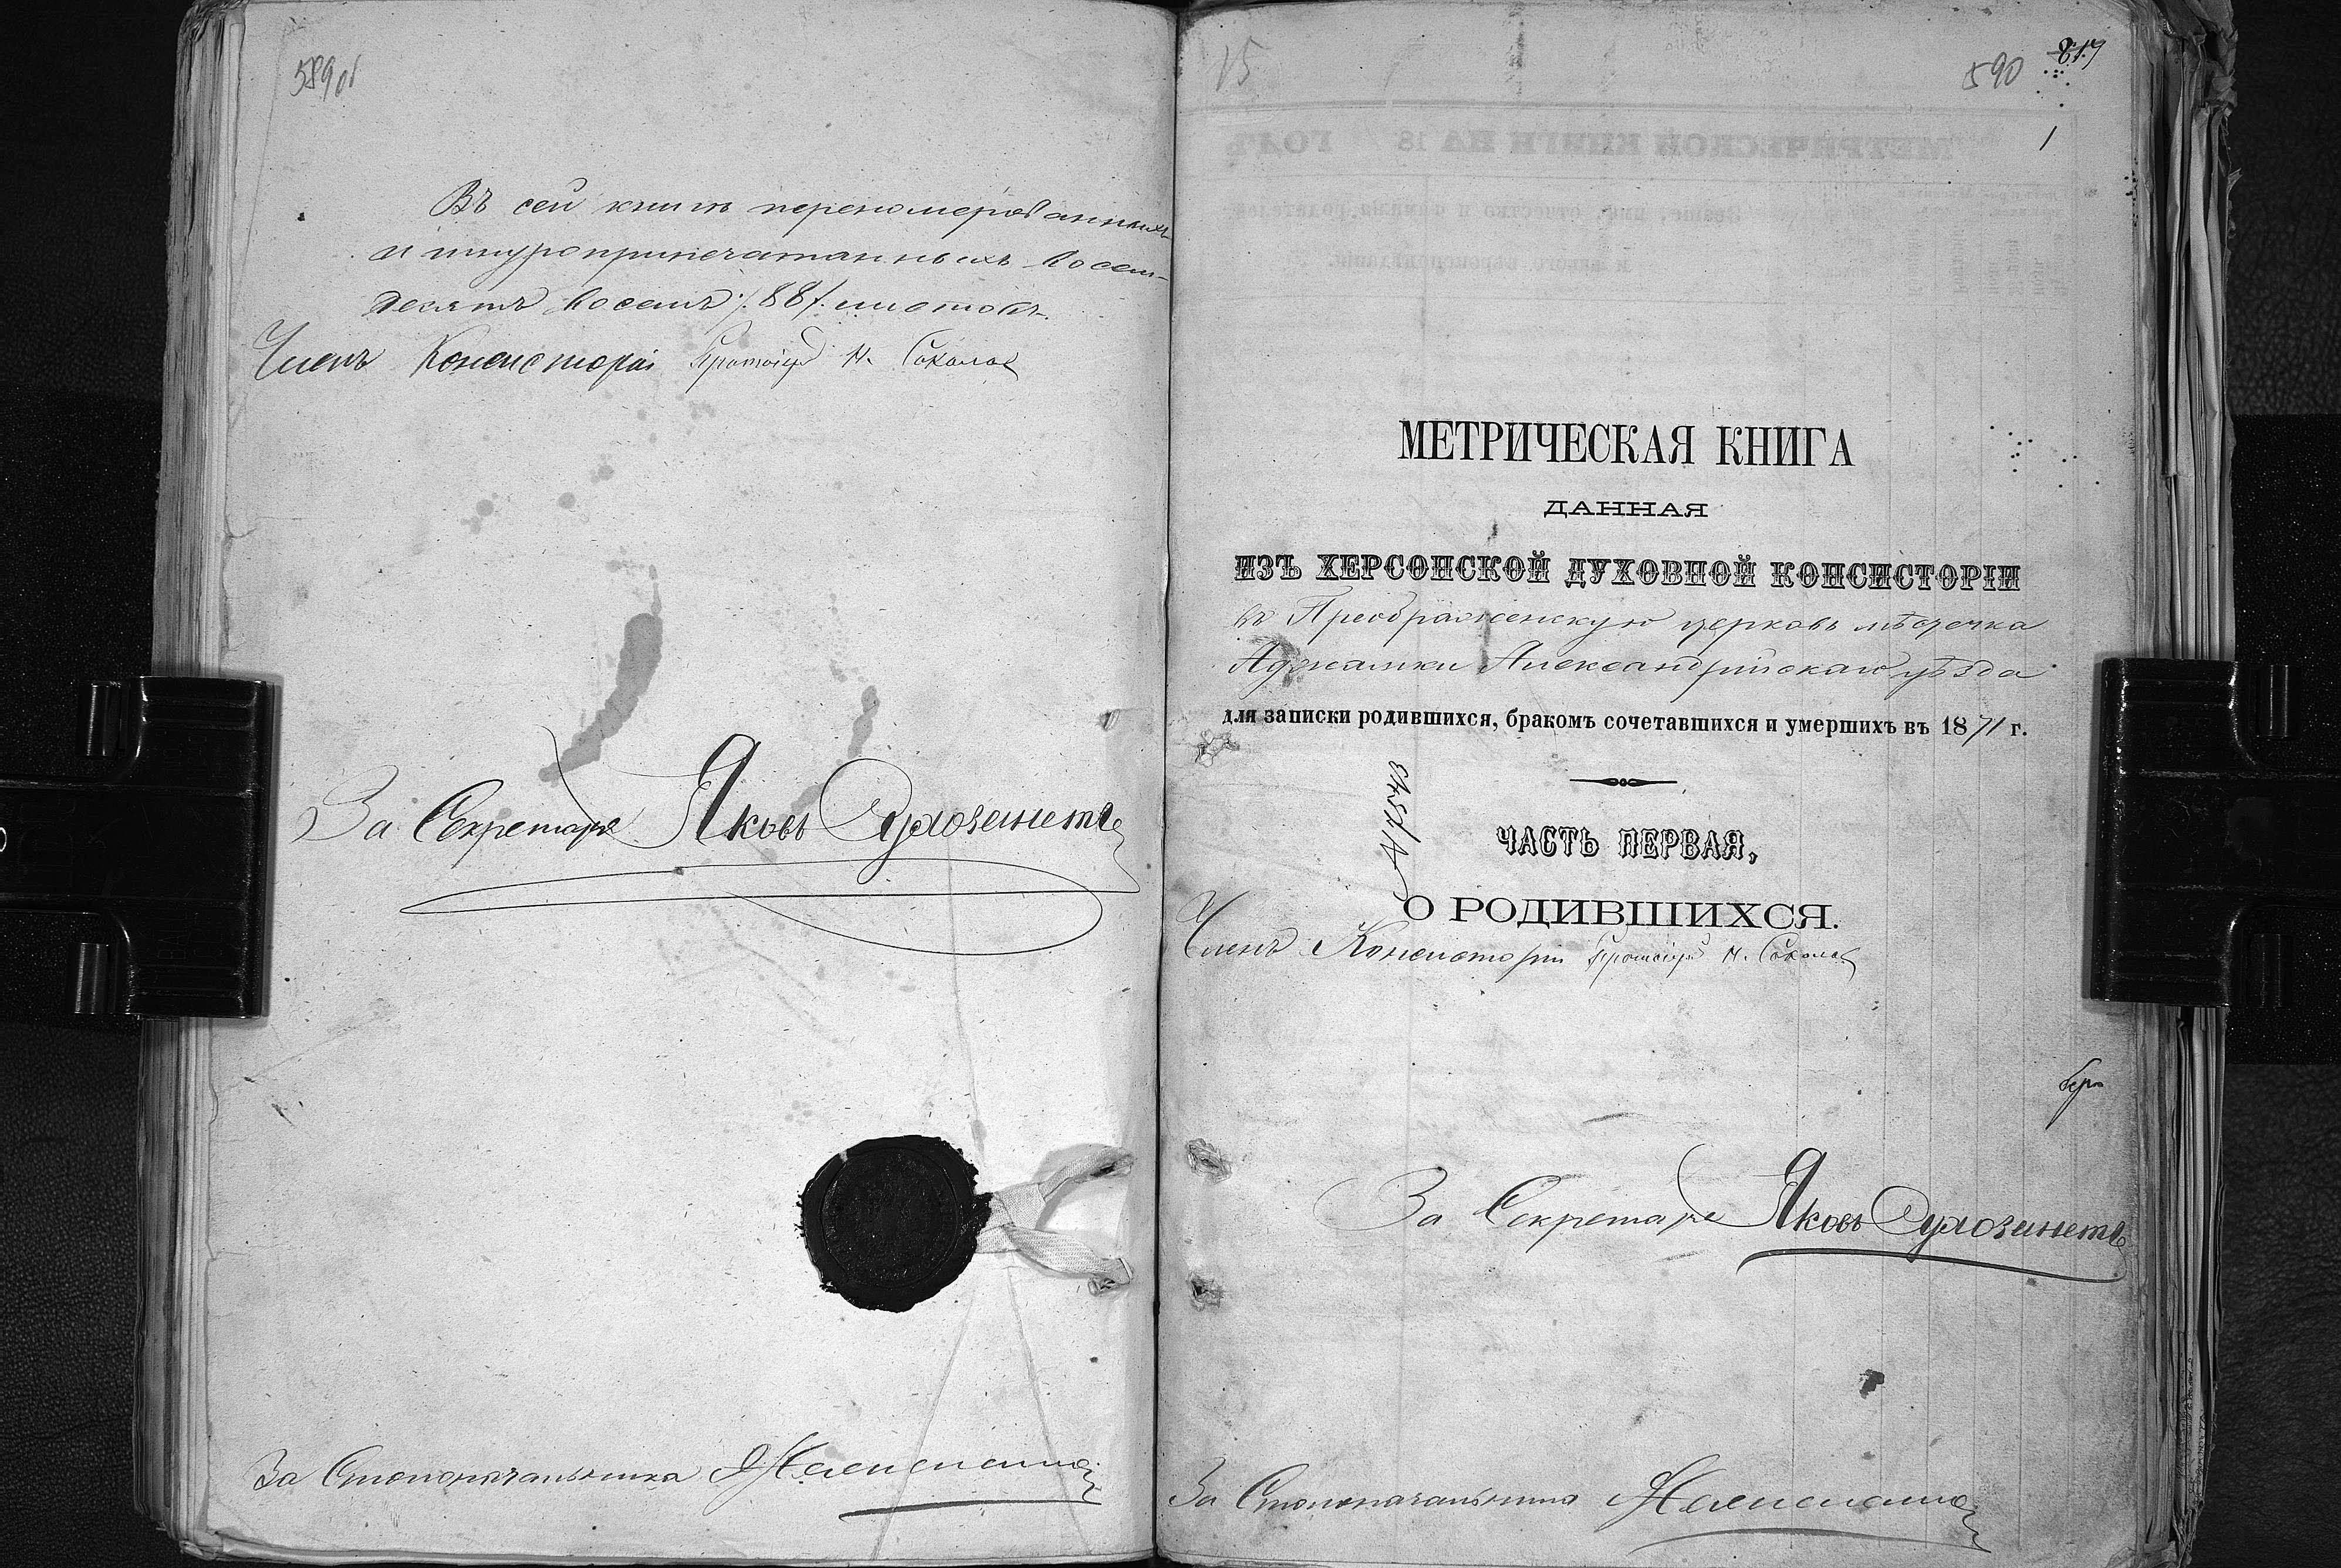 589 об
Въ сей книгѣ перенумерованныхъ
и шнуроприпечатанныхъ Восем-
десятъ Восемь /.88/. листовъ.
Членъ Консисторіи Протоіер М. Соколов
За Секретаря Яковъ
За Столоначальника
15
590
817
1
МЕТРИЧЕСКАЯ КНИГА
ДАННАЯ
ИЗЪ ХЕРСОНСКОЙ ДУХОВНОЙ КОНСИСТОРІИ
въ Преображенскую церковь мѣстечка
Аджамки Александрійскаго уѣзда
для записки родившихся, бракомъ сочетавшихся и умершихъ въ 1871 г.
№ 7543
ЧАСТЬ ПЕРВАЯ,
О РОДИВШИХСЯ.
Членъ Консисторіи Протоіер М. Соколов
За Секретаря Яковъ
За Столоначальника